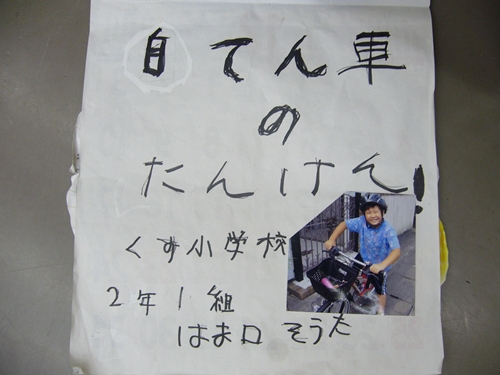 自てん車
の
たんけん!
くす小学校
2年1組
はま口 そうた